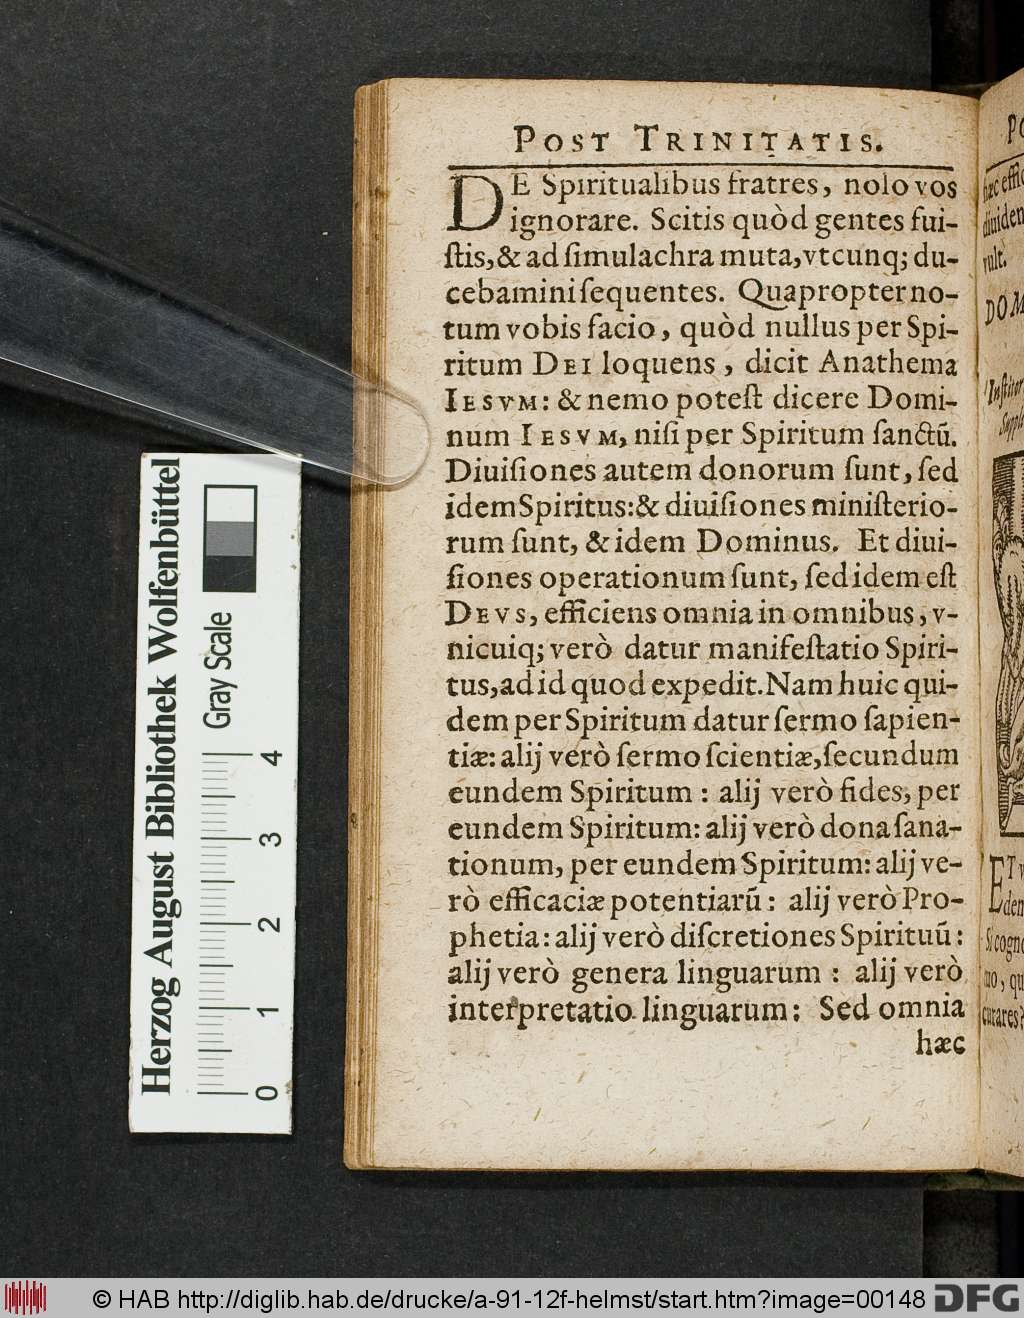 POST TRINITATIS.
DE Spiritualibus fratres, nolo vos
ignorare. Scitis quòd gentes fui-
ſtis, & ad ſimulachra muta, vtcunq; du-
cebamini ſequentes. Quapropter no-
tum vobis facio, quòd nullus per Spi-
ritum DEI loquens, dicit Anathema
IESVM: & nemo poteſt dicere Domi-
num IESVM, niſi per Spiritum ſanctũ.
Diuiſiones autem donorum ſunt, ſed
idem Spiritus: & diuiſiones miniſterio-
rum ſunt, & idem Dominus. Et diui-
ſiones operationum ſunt, ſed idem eſt
DEVS, efficiens omnia in omnibus, v-
nicuiq; verò datur manifeſtatio Spiri-
tus, ad id quod expedit. Nam huic qui-
dem per Spiritum datur ſermo ſapien-
tiæ: alij verò ſermo ſcientiæ, ſecundum
eundem Spiritum: alij verò fides, per
eundem Spiritum: alij verò dona ſana-
tionum, per eundem Spiritum: alij ve-
rò efficaciæ potentiarũ: alij verò Pro-
phetia: alij verò diſcretiones Spirituũ:
alij verò genera linguarum: alij verò
interpretatio linguarum: Sed omnia
hæc
Herzog August Bibliothek Wolfenbüttel
Gray Scale
0 1 2 3 4
hæc
vult.
© HAB http://diglib.hab.de/drucke/a-91-12f-helmst/start.htm?image=00148
DFG